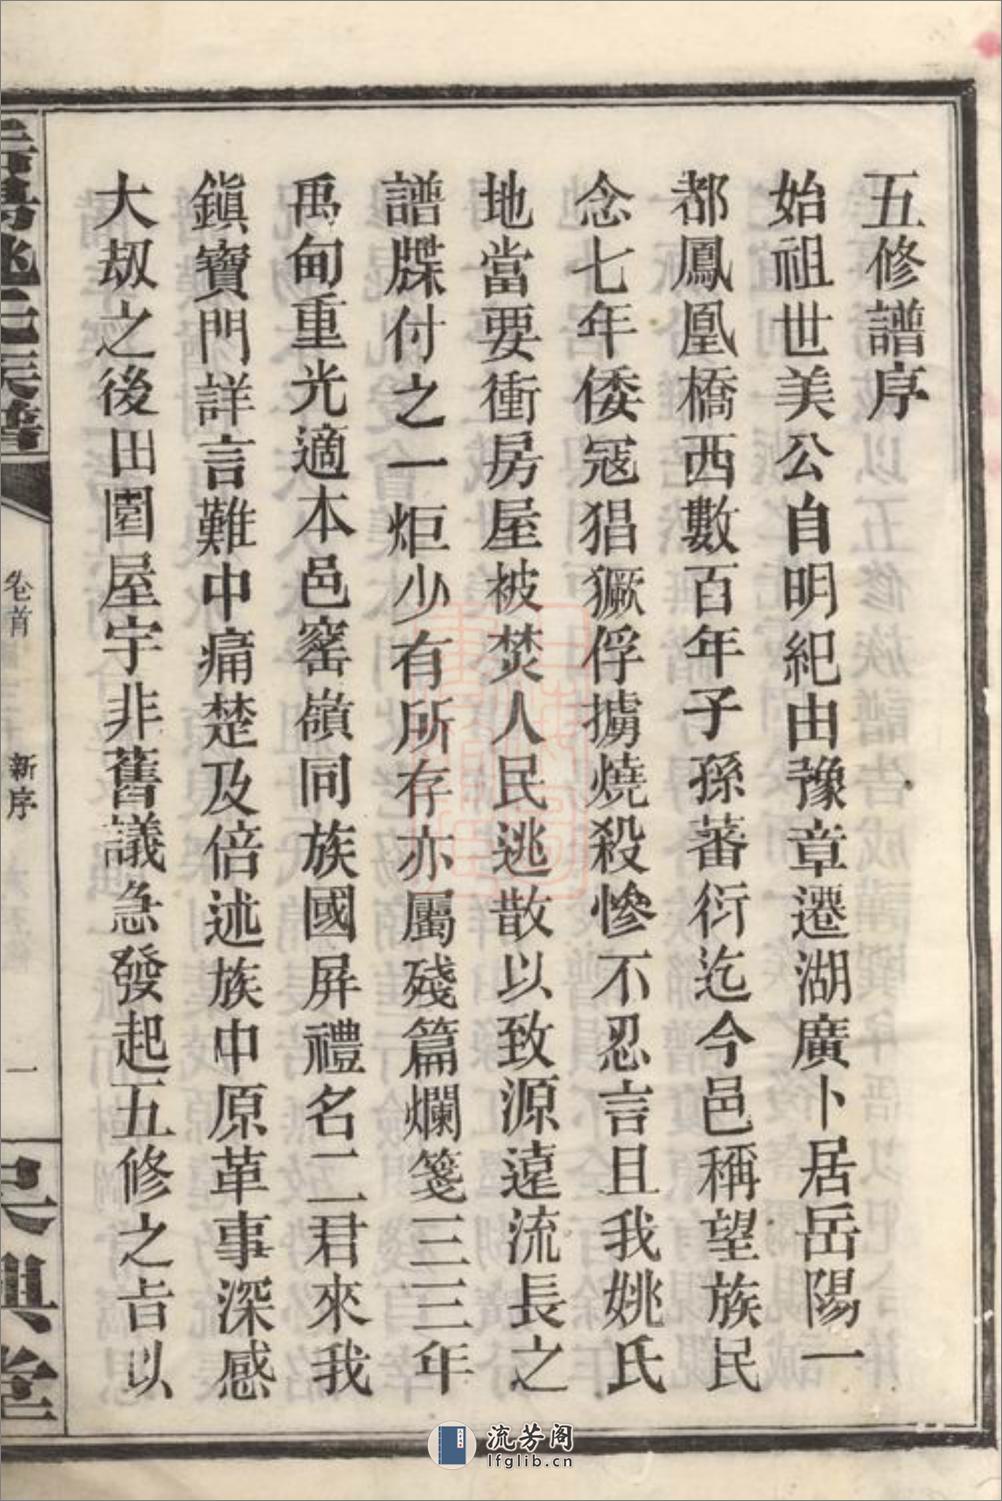 五修譜序
始祖世美公自明紀由豫章遷湖廣卜居岳陽一
都鳳凰橋西數百年子孫蕃衍迄今邑稱望族民
念七年倭冦猖獗俘擄燒殺慘不忍言且我姚氏
地當要衝房屋被焚人民逃散以致源遠流長之
譜牒付之一炬少有所存亦屬殘篇爛箋三三年
禹甸重光適本邑窰嶺同族國屏禮名二君來我
鎭寶門詳言難中痛楚及倍述族中原革事深感
大刼之後田園屋宇非舊議急發起五修之㫖以
岳陽姚氏族譜
卷首
新序
一
吳興堂
流芳阁
lfglib.cn